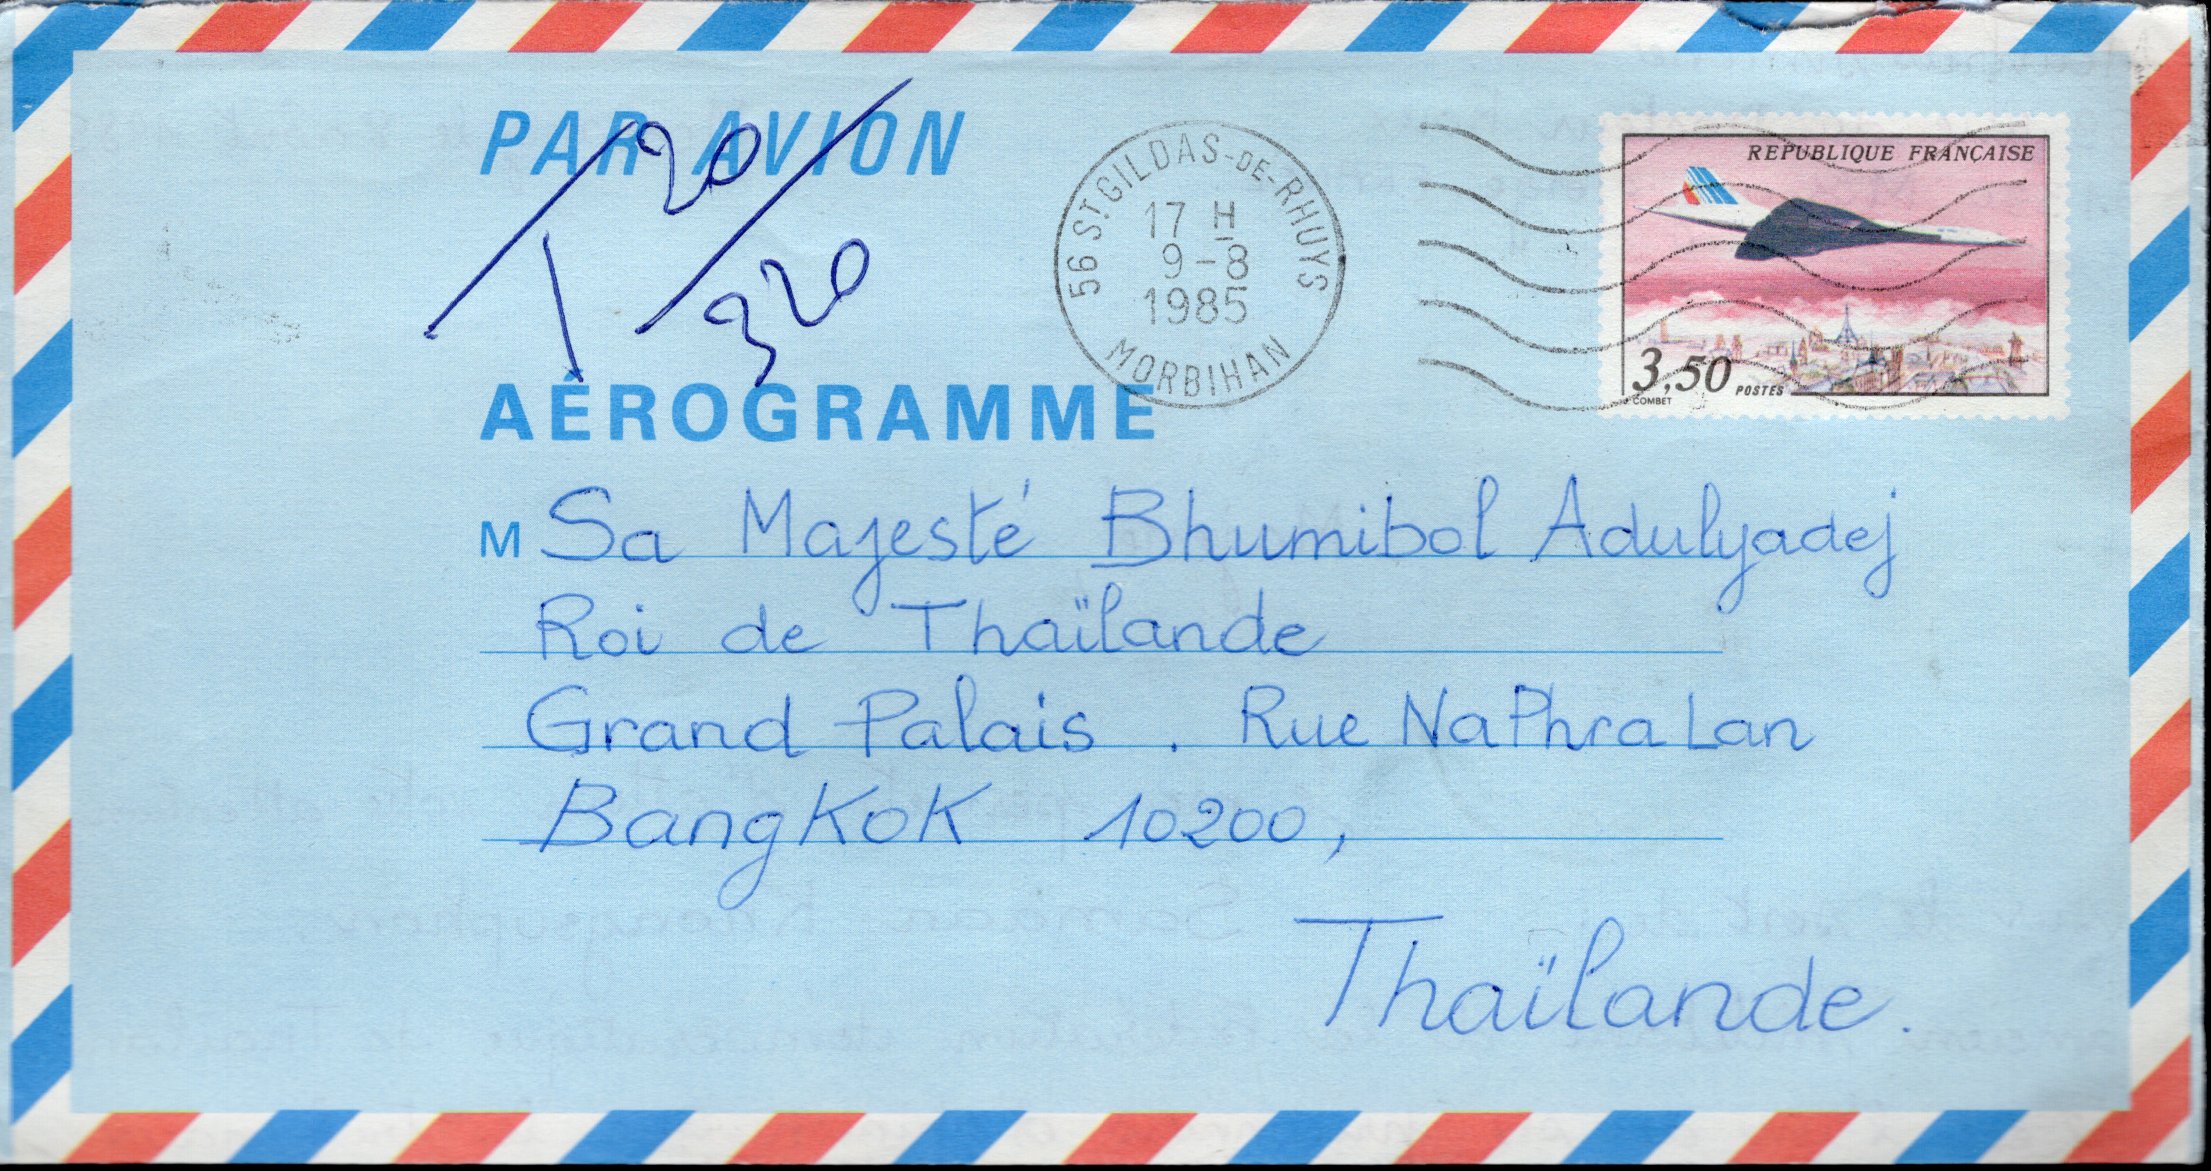 PAR AVION
1/20/320
AÉROGRAMME
56 ST GILDAS-DE-RHUYS
17 H
9-8
1985
MORBIHAN
REPUBLIQUE FRANÇAISE
3,50 POSTES
J. COMBET
M Sa Majesté Bhumibol Adulyadej
Roi de Thaïlande
Grand Palais. Rue Na Phra Lan
BangKoK 10200,
Thaïlande.